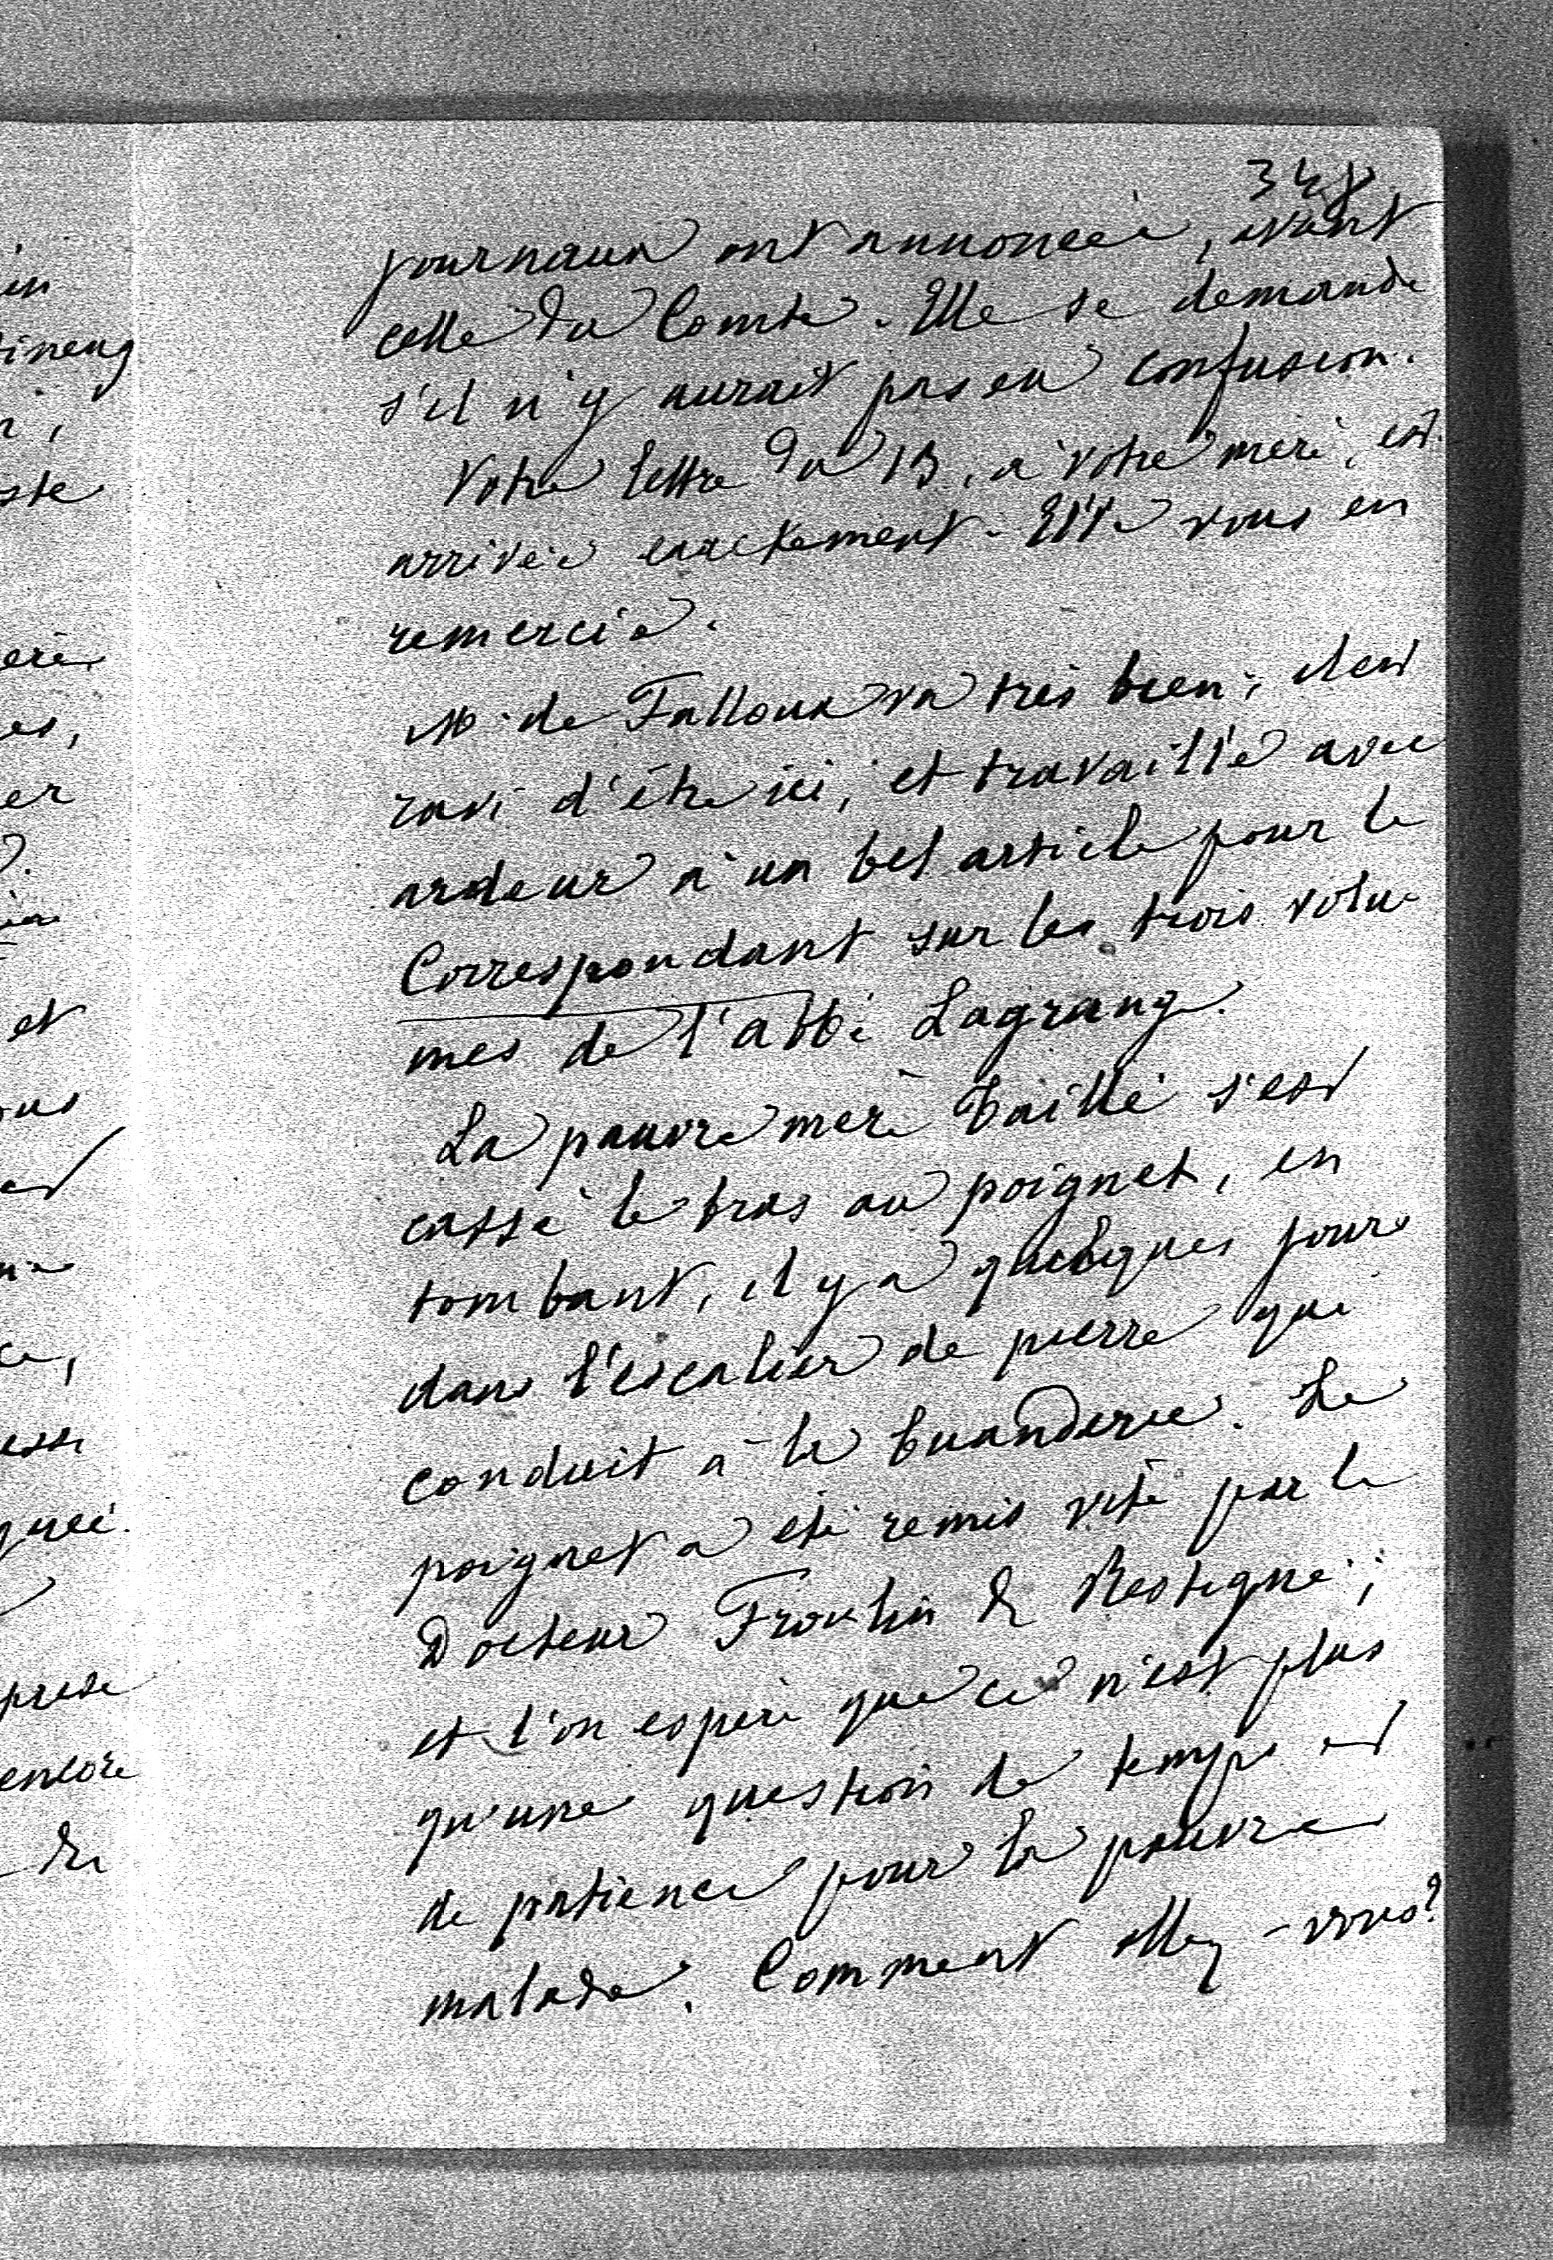 348
journaux ont annoncée, avant
celle du Comte. Elle se demande
s'il n'y aurait pas eu confusion.
Votre lettre du 13, à votre mère, est
arrivée exactement. Elle vous en
remercie.
M. de Falloux va très bien; il est
ravi d'être ici, et travaille avec
ardeur à un bel article pour le
Correspondant sur les trois volu-
mes de l'abbé Lagrange.
La pauvre mère Baillé s'est
cassé le bras au poignet, en
tombant, il y a quelques jours
dans l'escalier de pierre qui
conduit à la buanderie. Le
poignet a été remis vite par le
Docteur Froulin de Restigné;
et l'on espère que ce n'est plus
qu'une question de temps et
de patience pour la pauvre
malade. Comment allez-vous?